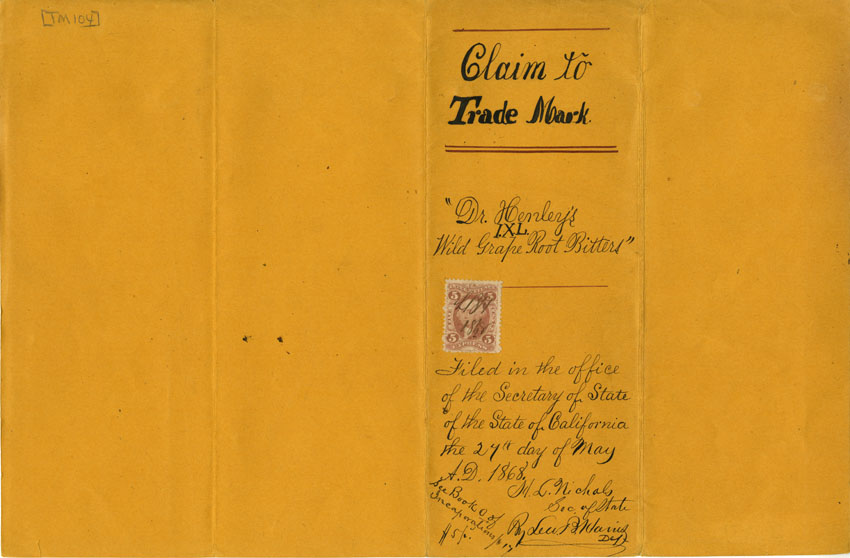 [TM104]
Claim to
Trade Mark.
"Dr. Henley's
I.X.L.
Wild Grape Root Bitters"
5 5
5 5
Filed in the office
of the Secretary of State
of the State of California
the 27th day of May
A.D. 1868.
H. L. Nichols
Sec. of State
By
Dept.
See Book
of
Incorporations
$5/-